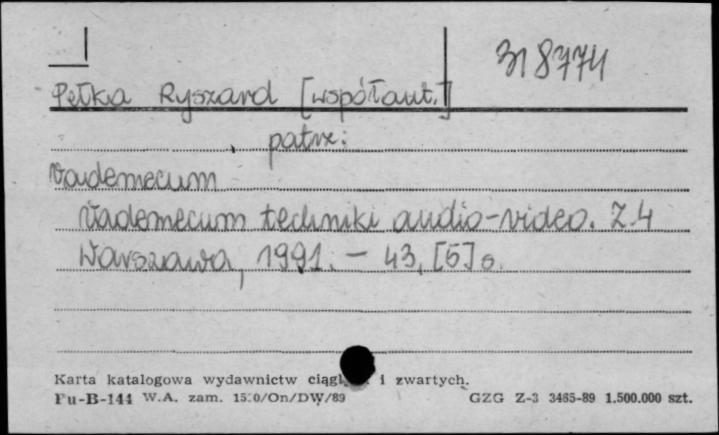 318774
Pełka Ryszard [współaut.]
patrz:
Vademecum
Vademecum techniki audio-video. Z.4
Warszawa, 1991. - 43, [5] s.
Karta katalogowa wydawnictw i zwartych.
Pu-B-144 W.A. zam. 1510/On/DW/89 GZG Z-3 3465-89 1.500.000 szt.